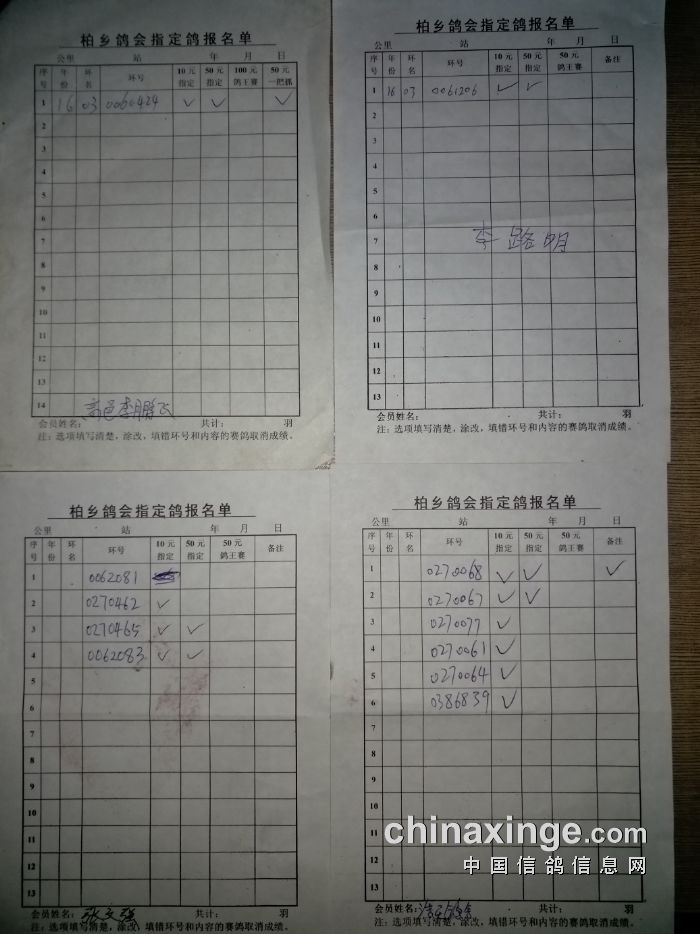 柏乡鸽会指定鸽报名单
公里 站 年 月 日
序号 年份 环名 环号 10元指定 50元指定 100元鸽王赛 50元一把抓
1 16 03 0060424 ✓ ✓ ✓
2
3
4
5
6
7
8
9
10
11
12
13
14
高邑李鹏飞
会员姓名: 共计: 羽
注:选项填写清楚,涂改,填错环号和内容的赛鸽取消成绩。
柏乡鸽会指定鸽报名单
公里 站 年 月 日
序号 年份 环名 环号 10元指定 50元指定 50元鸽王赛 备注
1 16 03 0061206 ✓ ✓
2
3
4
5
6
7 李路明
8
9
10
11
12
13
会员姓名: 共计: 羽
注:选项填写清楚,涂改,填错环号和内容的赛鸽取消成绩。
柏乡鸽会指定鸽报名单
公里 站 年 月 日
序号 年份 环名 环号 10元指定 50元指定 50元鸽王赛 备注
1 0062081
2 0270462 ✓
3 0270465 ✓ ✓
4 0062083 ✓ ✓
5
6
7
8
9
10
11
12
13
会员姓名: 张文强 共计: 羽
注:选项填写清楚,涂改,填错环号和内容的赛鸽取消成绩。
柏乡鸽会指定鸽报名单
公里 站 年 月 日
序号 年份 环名 环号 10元指定 50元指定 50元鸽王赛 备注
1 0270068 ✓ ✓ ✓
2 0270067 ✓ ✓
3 0270077 ✓
4 0270061 ✓
5 0270064 ✓
6 0386839 ✓
7
8
9
10
11
12
13
会员姓名: 共计: 羽
注:选项填写清楚,涂改,填错环号和内容的赛鸽取消成绩。
chinaxinge.com
中国信鸽信息网